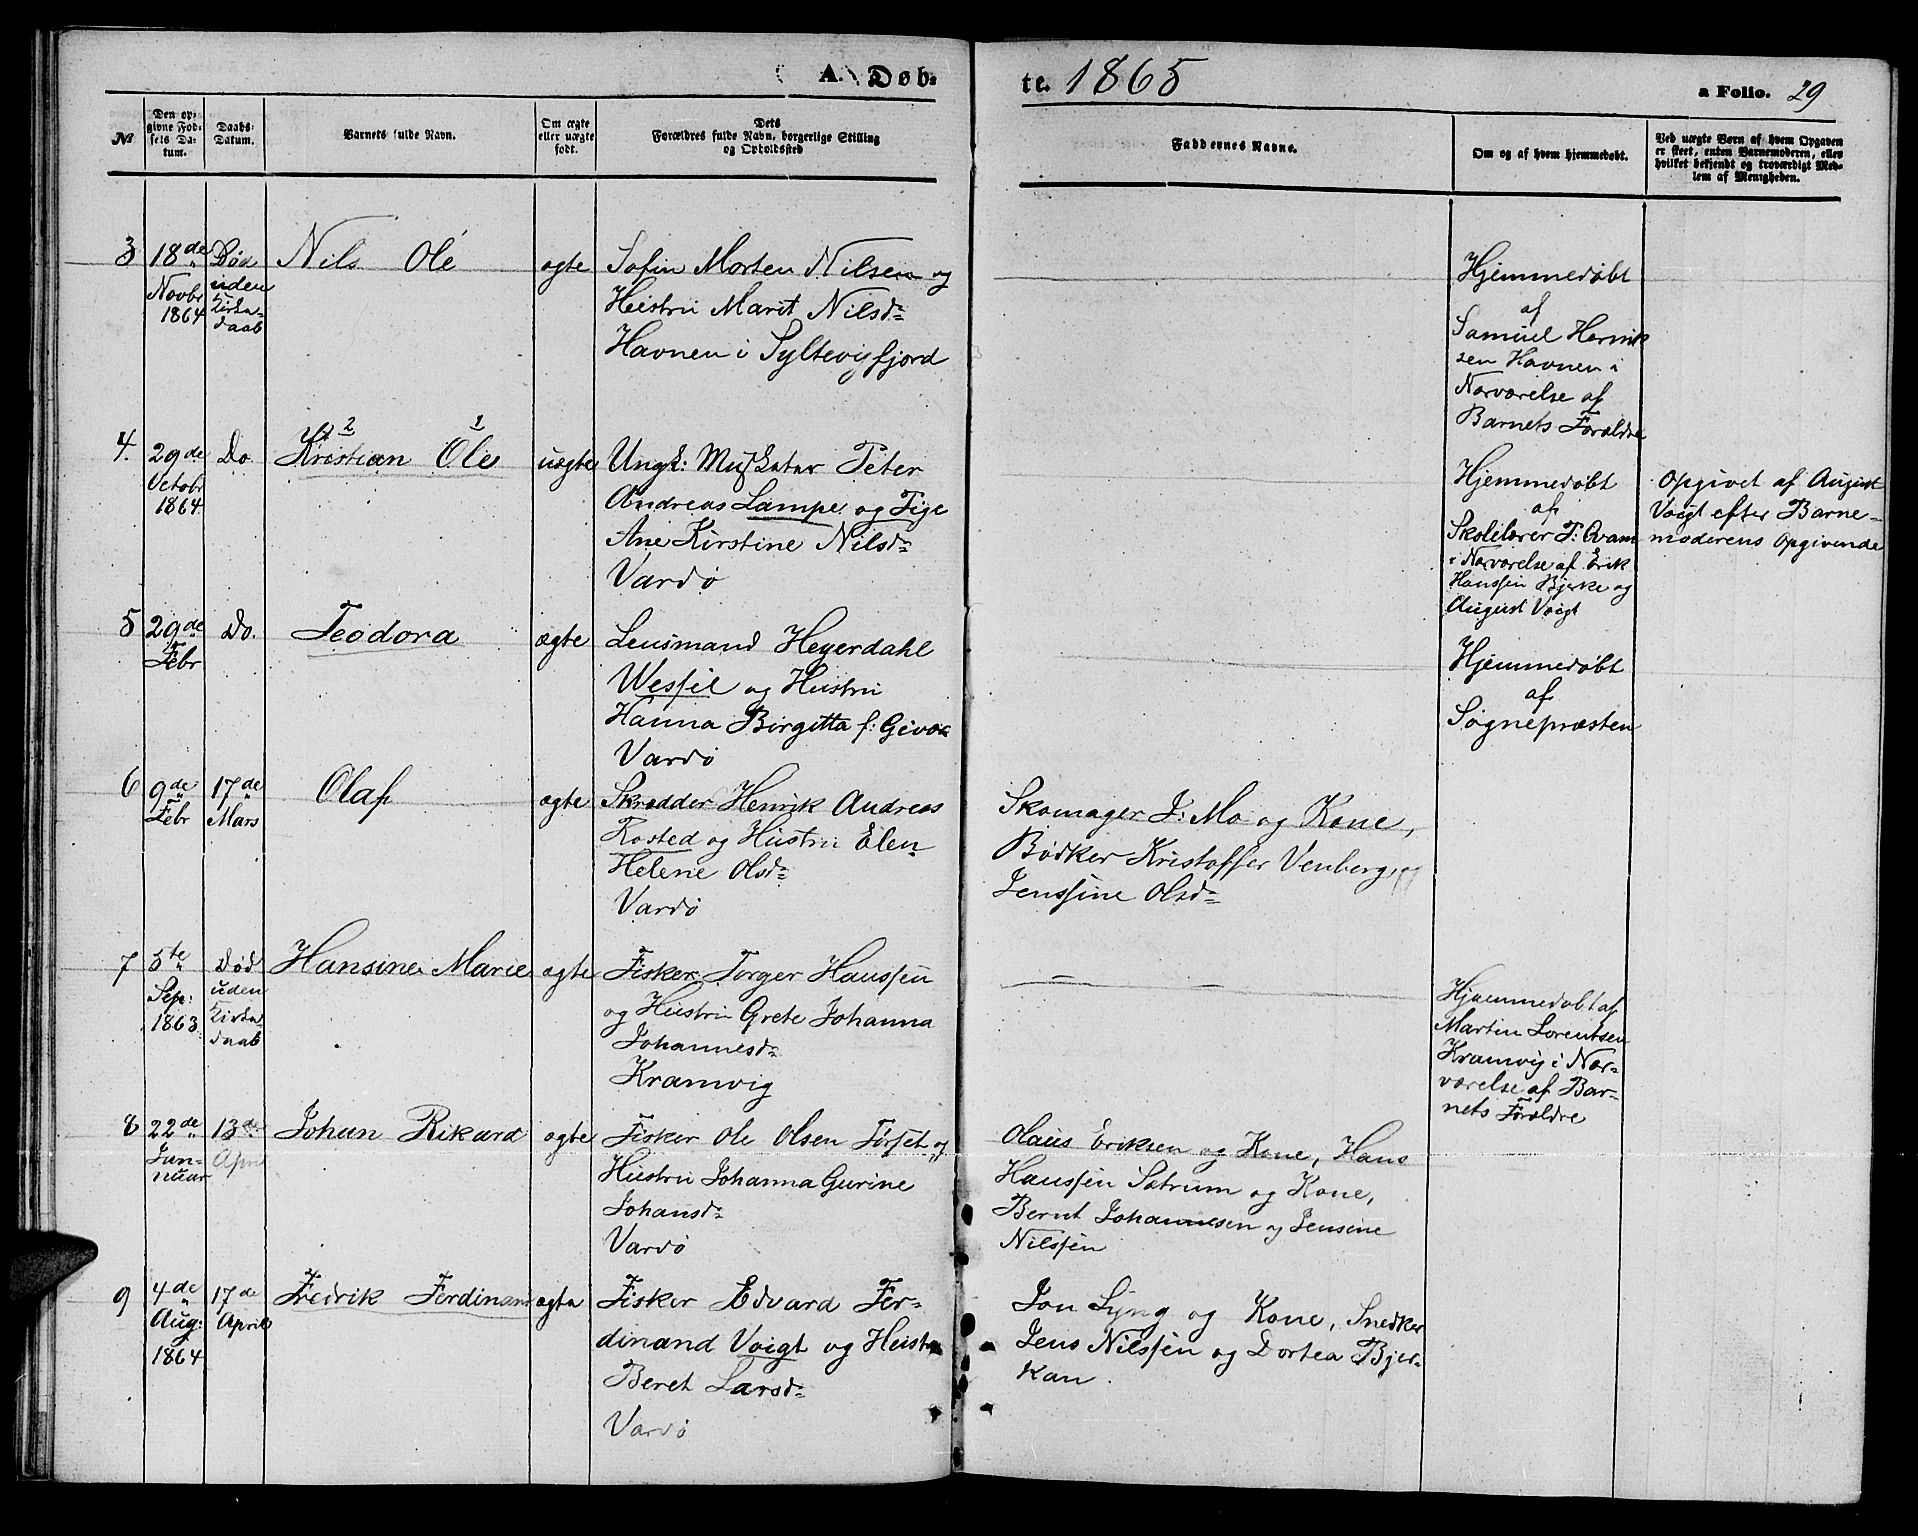 A. Døb-
te. 1865
a Folio. 29
№
Den op-
givne Fød-
sels Da-
tum.
Daabs-
Datum.
Barnets fulde Navn.
Om ægte
eller uægte
født.
Dets
Forældres fulde Navn, borgerlige Stilling
og Opholdssted
Faddernes Navne.
Om og af hvem hjemmedøbt.
Ved uægte Børn af hvem Opgaven
er skeet, enten Barnemoderen, eller
hvilket bekjendt og troværdigt Med-
lem af Menigheden.
3
18de
Novbr
1864
Død
uden
Kirke-
daab
Nils Ole
ægte
Sofin Morten Nilsen og
Hustru Marit Nilsd-
Havnen i Syltevigfjord
Hjemmedøbt
af
Samuel Henrik
sen Havnen i
Nærværelse af
Barnets Forældre
4.
29de
Octobr
1864
Do.
2 1
Kristian Ole
uægte
Ungk: Musketær Peter
Andreas Lampe og Pige
Ane Kirstine Nilsd-
Vardø
Hjemmedøbt
af
Skolelærer T: Qvam
i Nærværelse af Erik
Hanssen Bjerke og
August Voigt
Opgivet af August
Voigt efter Barne-
moderens Opgivende
5
29de
Febr
Do.
Teodora
ægte
Lensmand Heyerdahl
Wessel og Hustru
Hanna Birgitta f:
Vardø
Hjemmedøbt
af
Sognepræsten
6
9de
Febr
17de
Mars
Olaf
ægte
Skrædder Henrik Andreas
Rosted og Hustru Elen
Helene Olsd-
Vardø
Skomager J: Mo og Kone,
Bødker Kristoffer Venberg og
Jenssine Olsd-
7
5te
Sep:
1863
Død
uden
Kirke
daab
Hansine Marie
ægte
Fisker Torger Hanssen
og Hustru Grete Johanna
Johannesd-
Kramvig
Hjemmedøbt af
Martin Lorentsen
Kramvig i Nær-
værelse af Bar-
nets Forældre
8
22de
Jan-
nuar
13de
April
Johan Rikard
ægte
Fisker Ole Olsen Førset og
Hustru Johanna Gurine
Johansd-
Vardø
Olaus Eriksen og Kone, Hans
Hanssen Sætrum og Kone,
Bernt Johannesen og Jensine
Nilssen
9
4de
Aug:
1864
17de
April
Fredrik Ferdinand
ægte
Fisker Edvard Fer-
dinand Voigt og Hustru
Beret Larsd-
Vardø
Jon Lyng og Kone, Snedker
Jens Nilssen og Dortea Bjer-
kan.